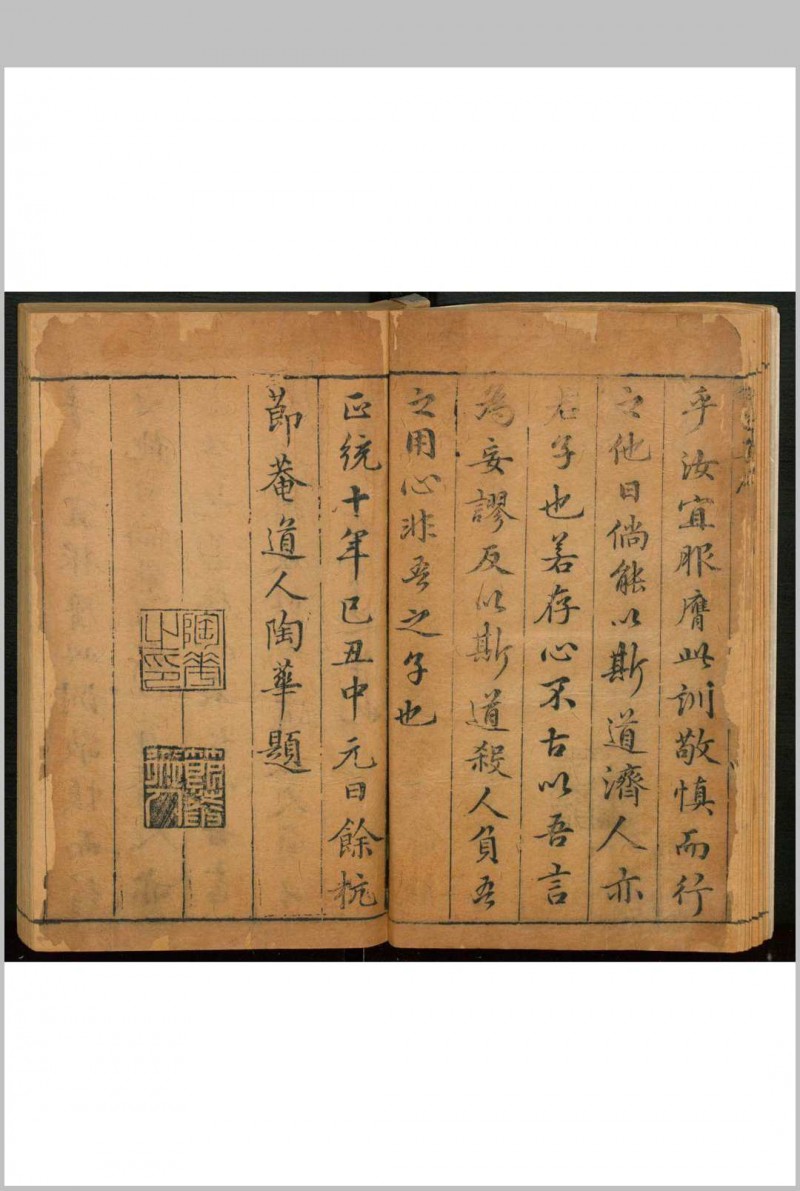 乎汝宜服膺此訓敬慎而行
之他日倘能以斯道濟人亦
君子也若存心不古以吾言
為妄謬反以斯道殺人負吾
之用心非吾之子也
正統十年己丑中元日餘杭
節菴道人陶華題
陶華之印
節菴